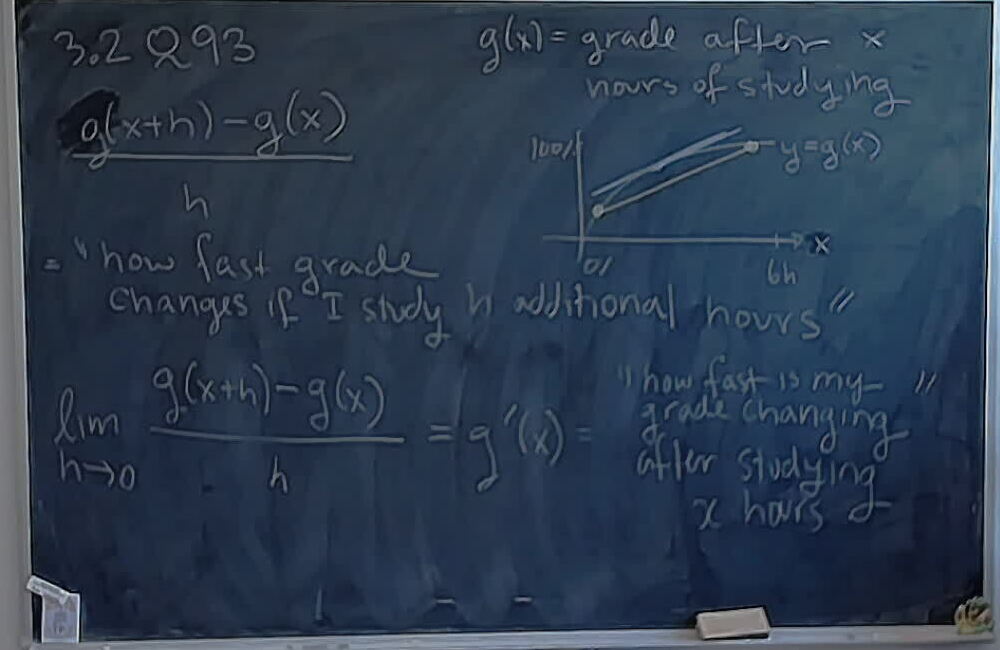 3.2 Q93
g(x) = grade after x
hours of studying
g(x+h) – g(x)
h
100%
y = g(x)
x
0%
6h
= "how fast grade
changes if I study h additional hours"
lim h→0 g(x+h) – g(x) / h = g'(x) =
"how fast is my
grade changing
after studying
x hours"